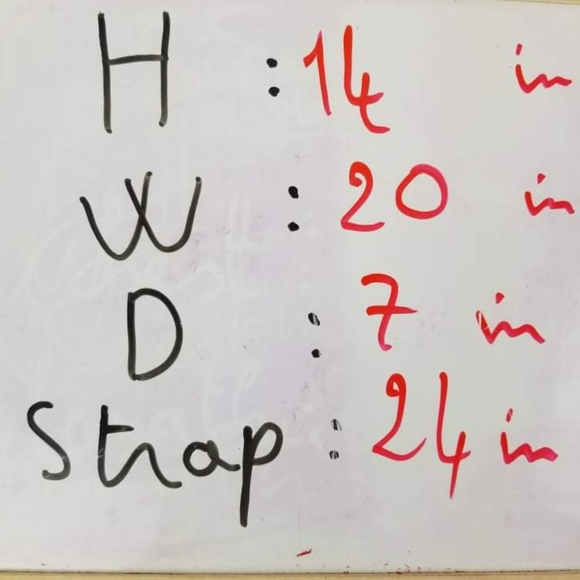 H : 14 in
W : 20 in
D : 7 in
Strap : 24 in